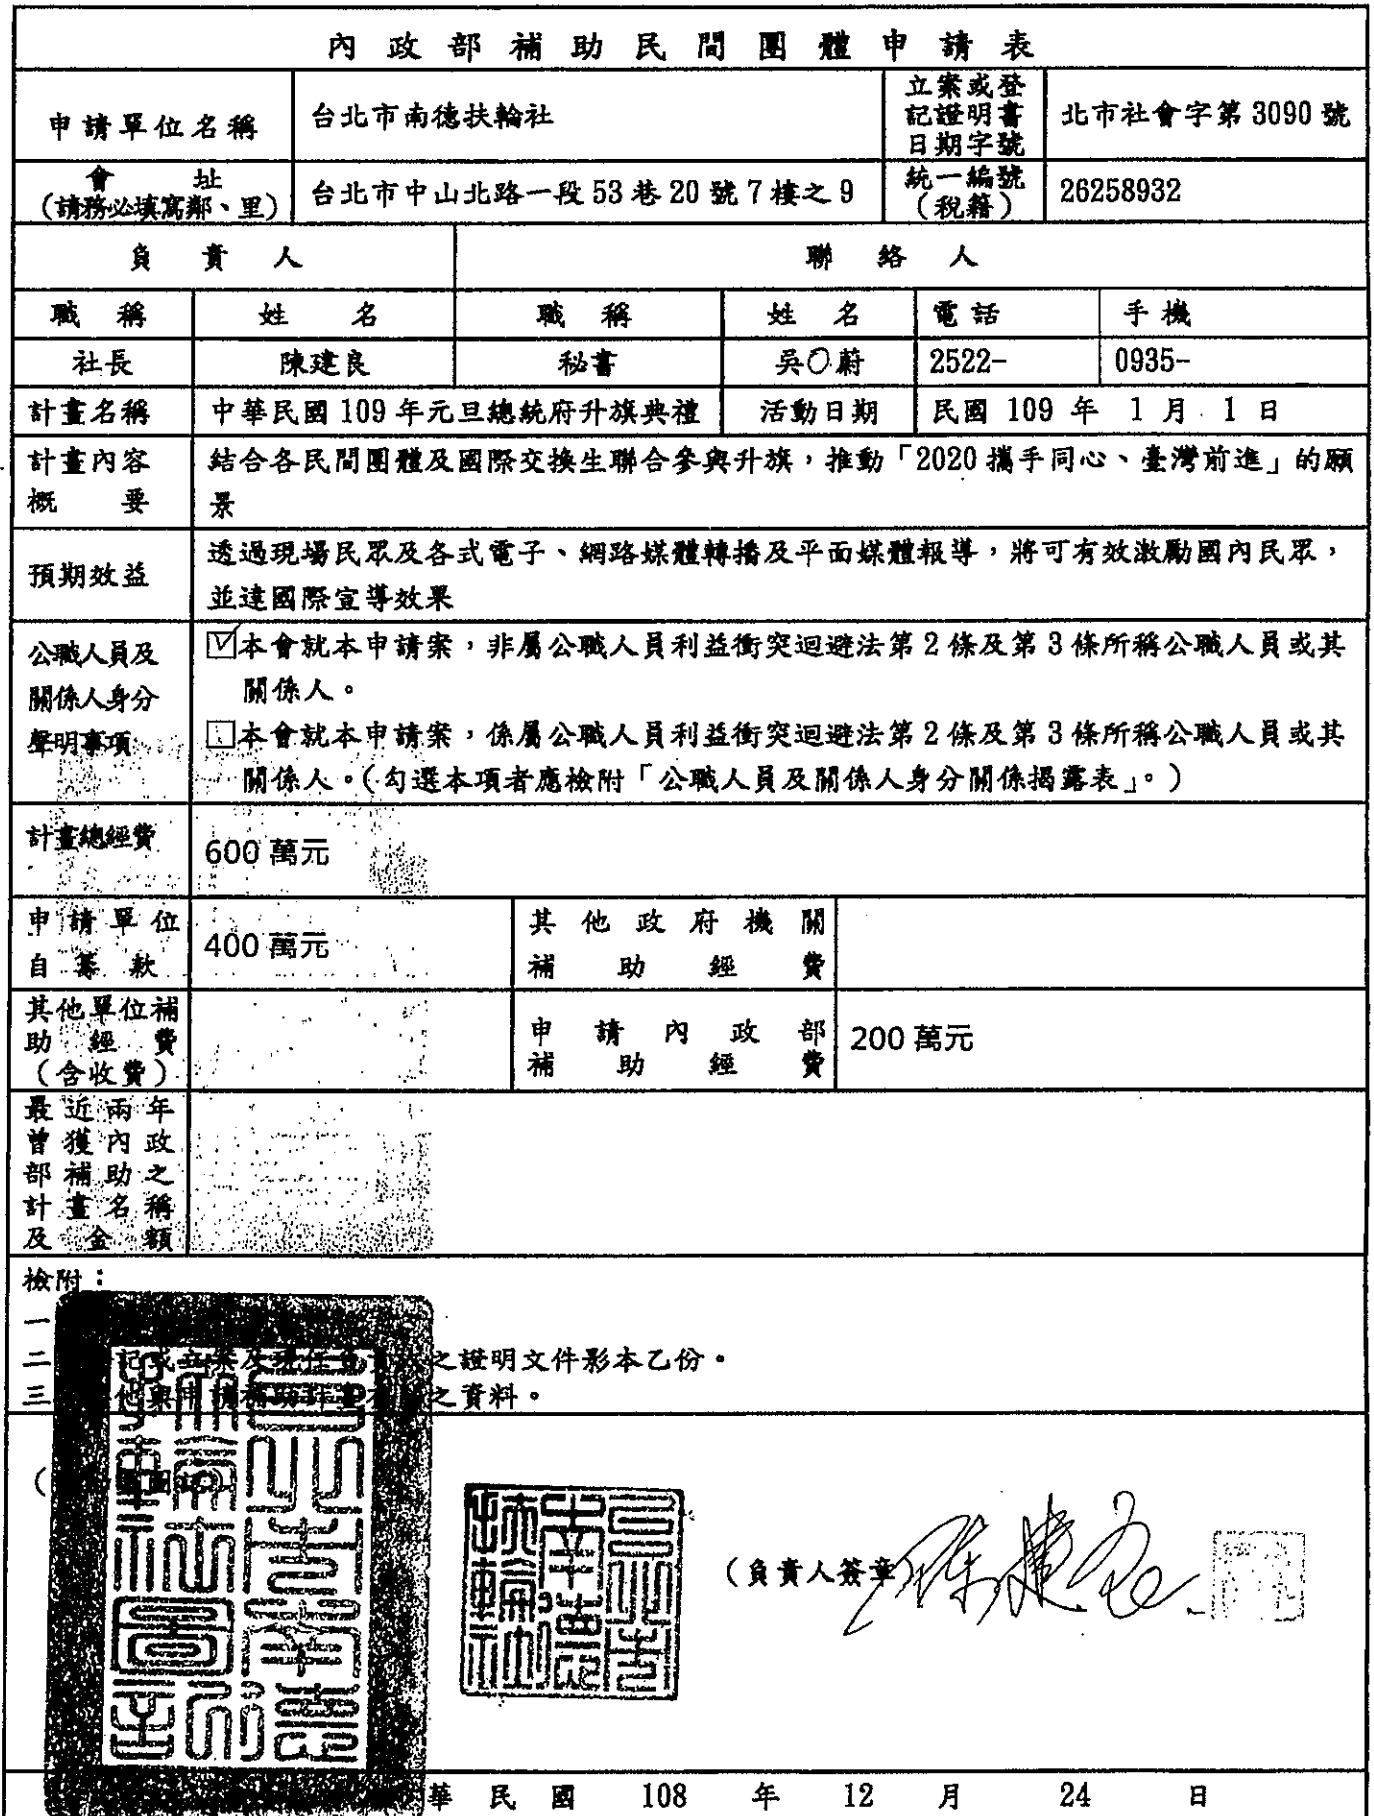 內政部補助民間團體申請表
申請單位名稱
台北市南德扶輪社
立案或登
記證明書
日期字號
北市社會字第 3090 號
會址
(請務必填寫鄰、里)
台北市中山北路一段 53 巷 20 號 7 樓之 9
統一編號
(稅籍)
26258932
負責人
聯絡人
職稱
姓名
職稱
姓名
電話
手機
社長
陳建良
秘書
吳○蔚
2522-
0935-
計畫名稱
中華民國 109 年元旦總統府升旗典禮
活動日期
民國 109 年 1 月 1 日
計畫內容
概要
結合各民間團體及國際交換生聯合參與升旗，推動「2020 攜手同心、臺灣前進」的願
景
預期效益
透過現場民眾及各式電子、網路媒體轉播及平面媒體報導，將可有效激勵國內民眾，
並達國際宣導效果
公職人員及
關係人身分
聲明事項
☑本會就本申請案，非屬公職人員利益衝突迴避法第 2 條及第 3 條所稱公職人員或其
關係人。
□本會就本申請案，係屬公職人員利益衝突迴避法第 2 條及第 3 條所稱公職人員或其
關係人。(勾選本項者應檢附「公職人員及關係人身分關係揭露表」。)
計畫總經費
600 萬元
申請單位
自籌款
400 萬元
其他政府機關
補助經費
其他單位補
助經費
(含收費)
申請內政部
補助經費
200 萬元
最近兩年
曾獲內政
部補助之
計畫名稱
及金額
檢附：
一
二 記或立案及現任負責人之證明文件影本乙份。
三 他與申請補助計畫有關之資料。
台北市南德扶輪社
(負責人簽章) 陳建良
華民國 108 年 12 月 24 日